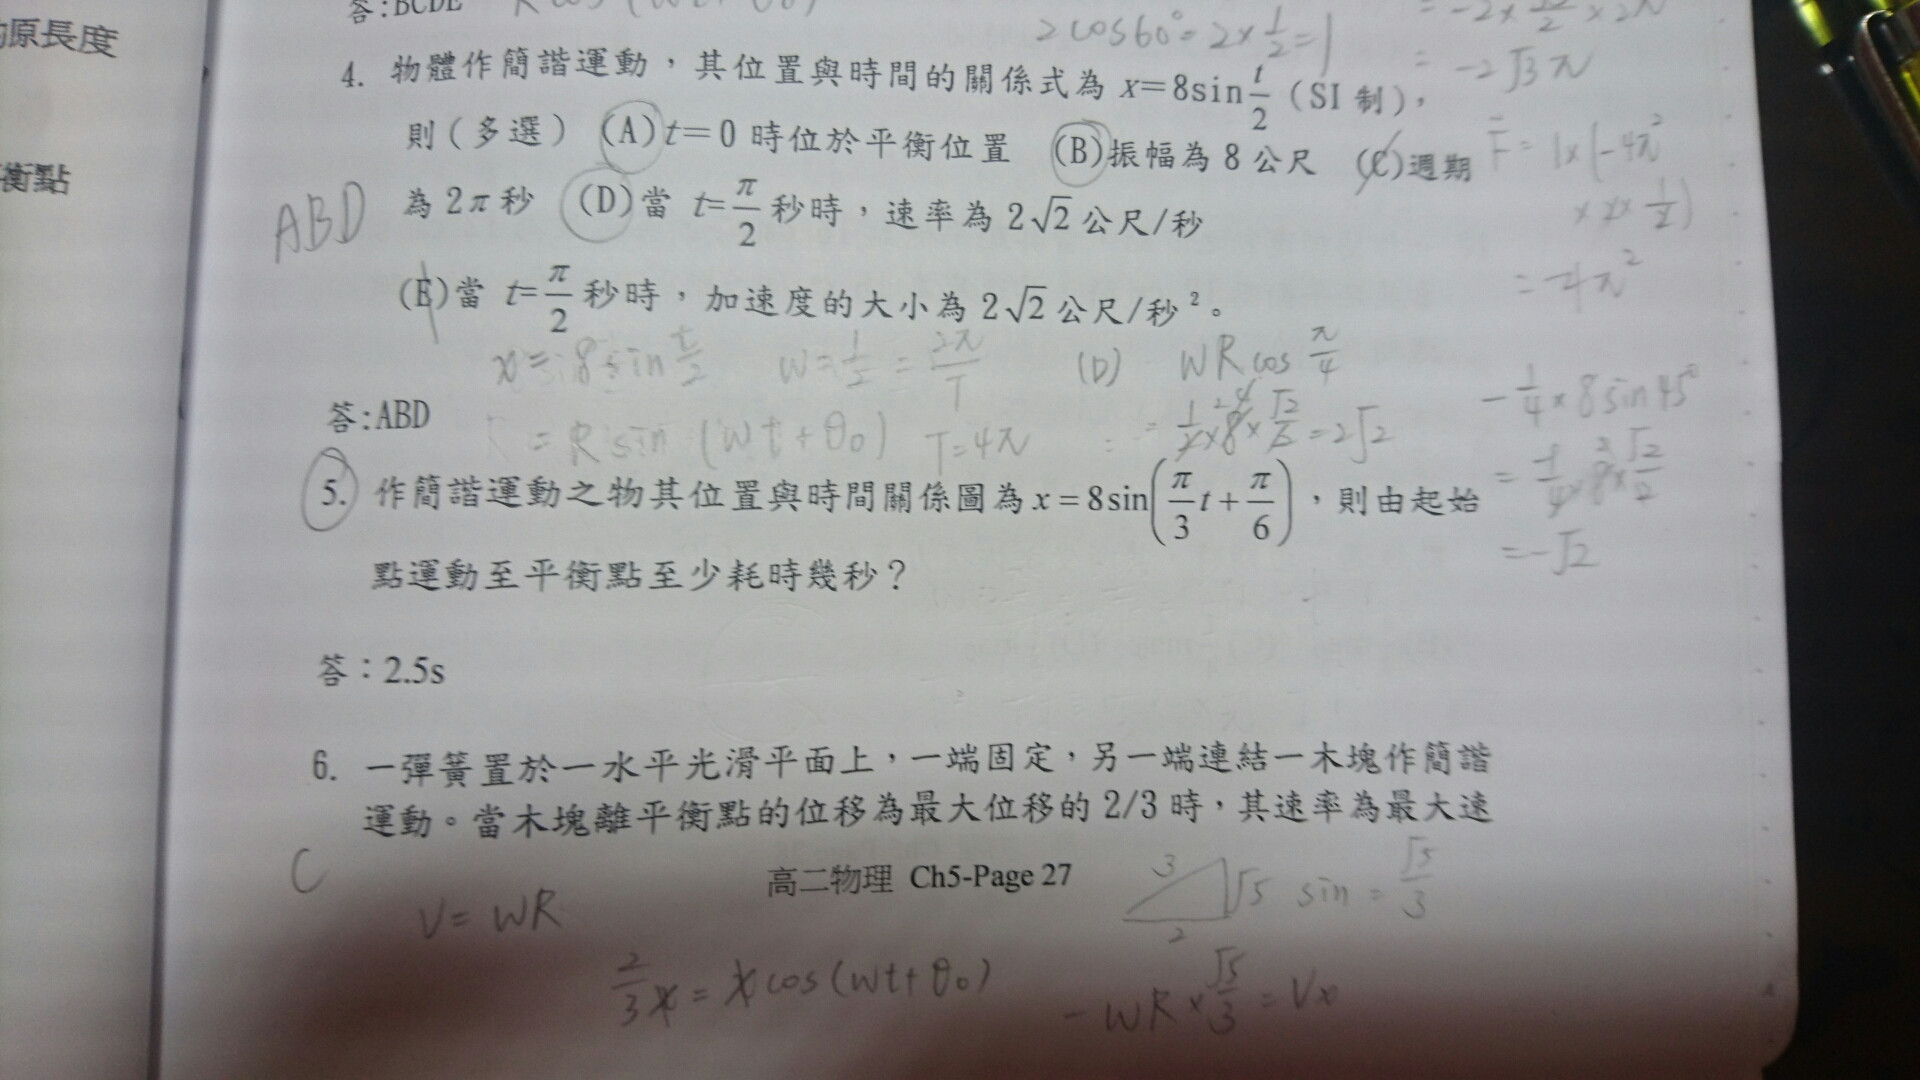 的原長度
衡點
答:BCDE
2cos60°=2×1/2=1
-2√3π
4. 物體作簡諧運動，其位置與時間的關係式為 x=8sin t/2 (SI 制)，
則(多選) (A)t=0 時位於平衡位置 (B)振幅為 8 公尺 (C)週期
F=1×(-4π²
××1/2)
=-4π²
為 2π秒 (D)當 t=π/2 秒時，速率為 2√2 公尺/秒
ABD
(E)當 t=π/2 秒時，加速度的大小為 2√2 公尺/秒²。
x=8sin t/2 W=1/2=2π/T (D) WRcos π/4
=Rsin(Wt+θ₀) T=4π =1/2×8×√2/2=2√2
-1/4×8sin45°
=-1/4×8×√2/2
=-√2
答:ABD
5. 作簡諧運動之物其位置與時間關係圖為 x=8sin(π/3 t+π/6)，則由起始
點運動至平衡點至少耗時幾秒？
答：2.5s
6. 一彈簧置於一水平光滑平面上，一端固定，另一端連結一木塊作簡諧
運動。當木塊離平衡點的位移為最大位移的 2/3 時，其速率為最大速
C
高二物理 Ch5-Page 27
3 √5 2 sin=√5/3
V=WR
2/3x=xcos(Wt+θ₀)
-WR×√5/3=Vx